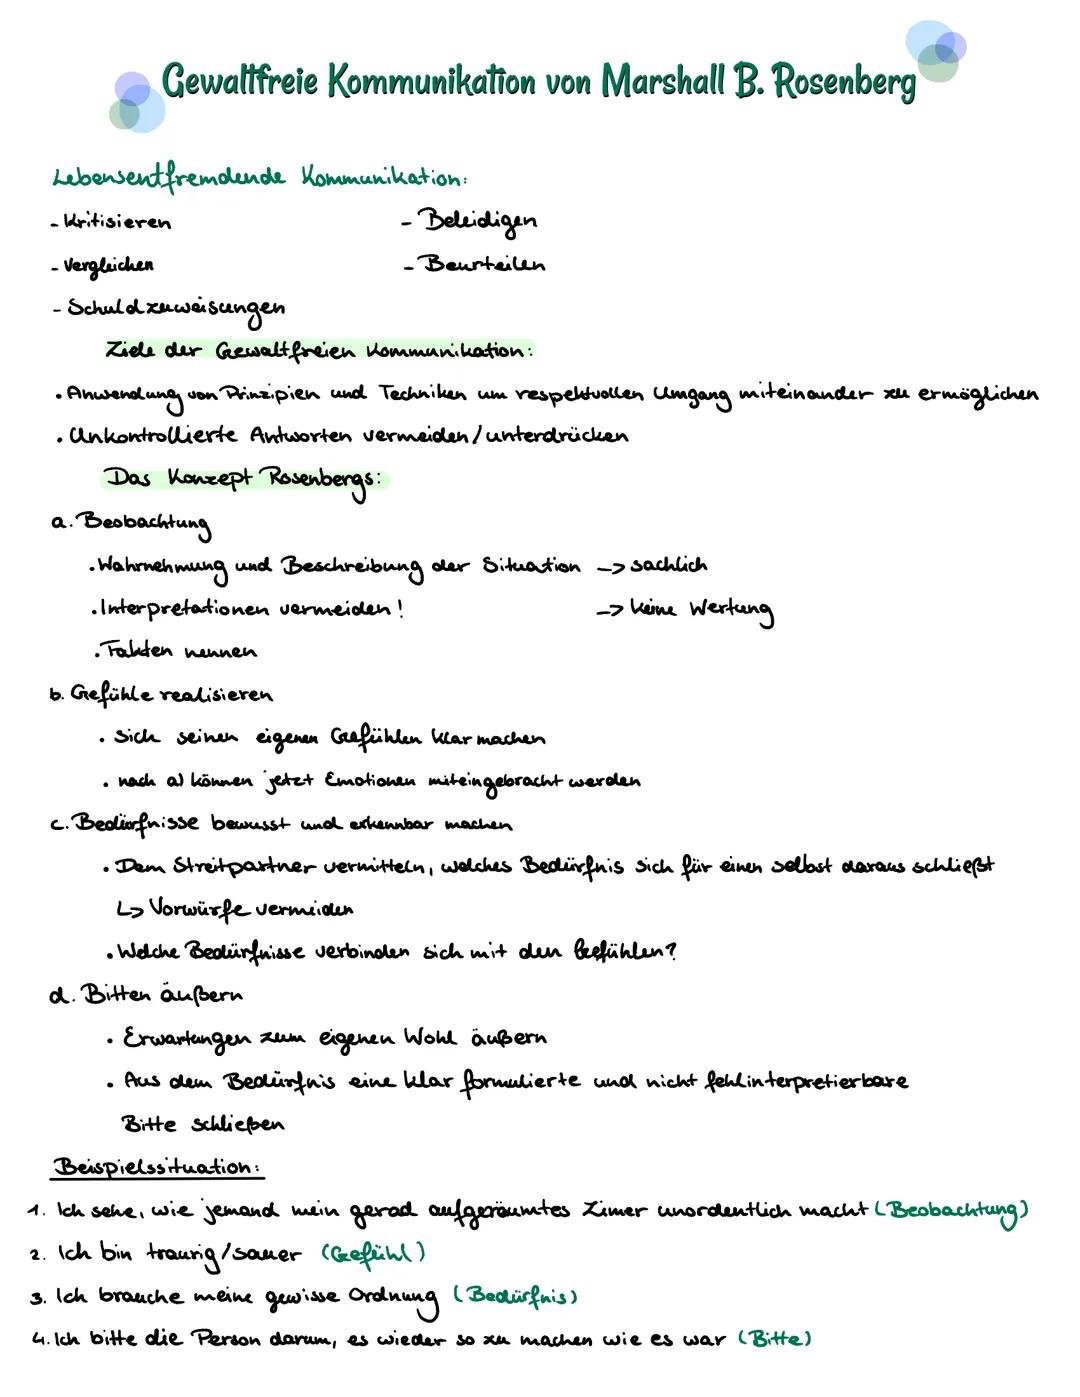 Gewaltfreie Kommunikation von Marshall B. Rosenberg
Lebensentfremdende Kommunikation:
- Kritisieren - Beleidigen
- Vergleichen - Beurteilen
- Schuldzuweisungen
Ziele der Gewaltfreien Kommunikation:
• Anwendung von Prinzipien und Techniken um respektvollen Umgang miteinander zu ermöglichen
• Unkontrollierte Antworten vermeiden/unterdrücken
Das Konzept Rosenbergs:
a. Beobachtung
• Wahrnehmung und Beschreibung der Situation -> sachlich
• Interpretationen vermeiden! -> keine Wertung
• Fakten nennen
b. Gefühle realisieren
• Sich seinen eigenen Gefühlen klar machen
• nach a) können jetzt Emotionen miteingebracht werden
c. Bedürfnisse bewusst und erkennbar machen
• Dem Streitpartner vermitteln, welches Bedürfnis sich für einen selbst daraus schließt
↳ Vorwürfe vermeiden
• Welche Bedürfnisse verbinden sich mit den Gefühlen?
d. Bitten äußern
• Erwartungen zum eigenen Wohl äußern
• Aus dem Bedürfnis eine klar formulierte und nicht fehlinterpretierbare
Bitte schließen
Beispielssituation:
1. Ich sehe, wie jemand mein gerad aufgeräumtes Zimer unordentlich macht (Beobachtung)
2. Ich bin traurig/sauer (Gefühl)
3. Ich brauche meine gewisse Ordnung (Bedürfnis)
4. Ich bitte die Person darum, es wieder so zu machen wie es war (Bitte)